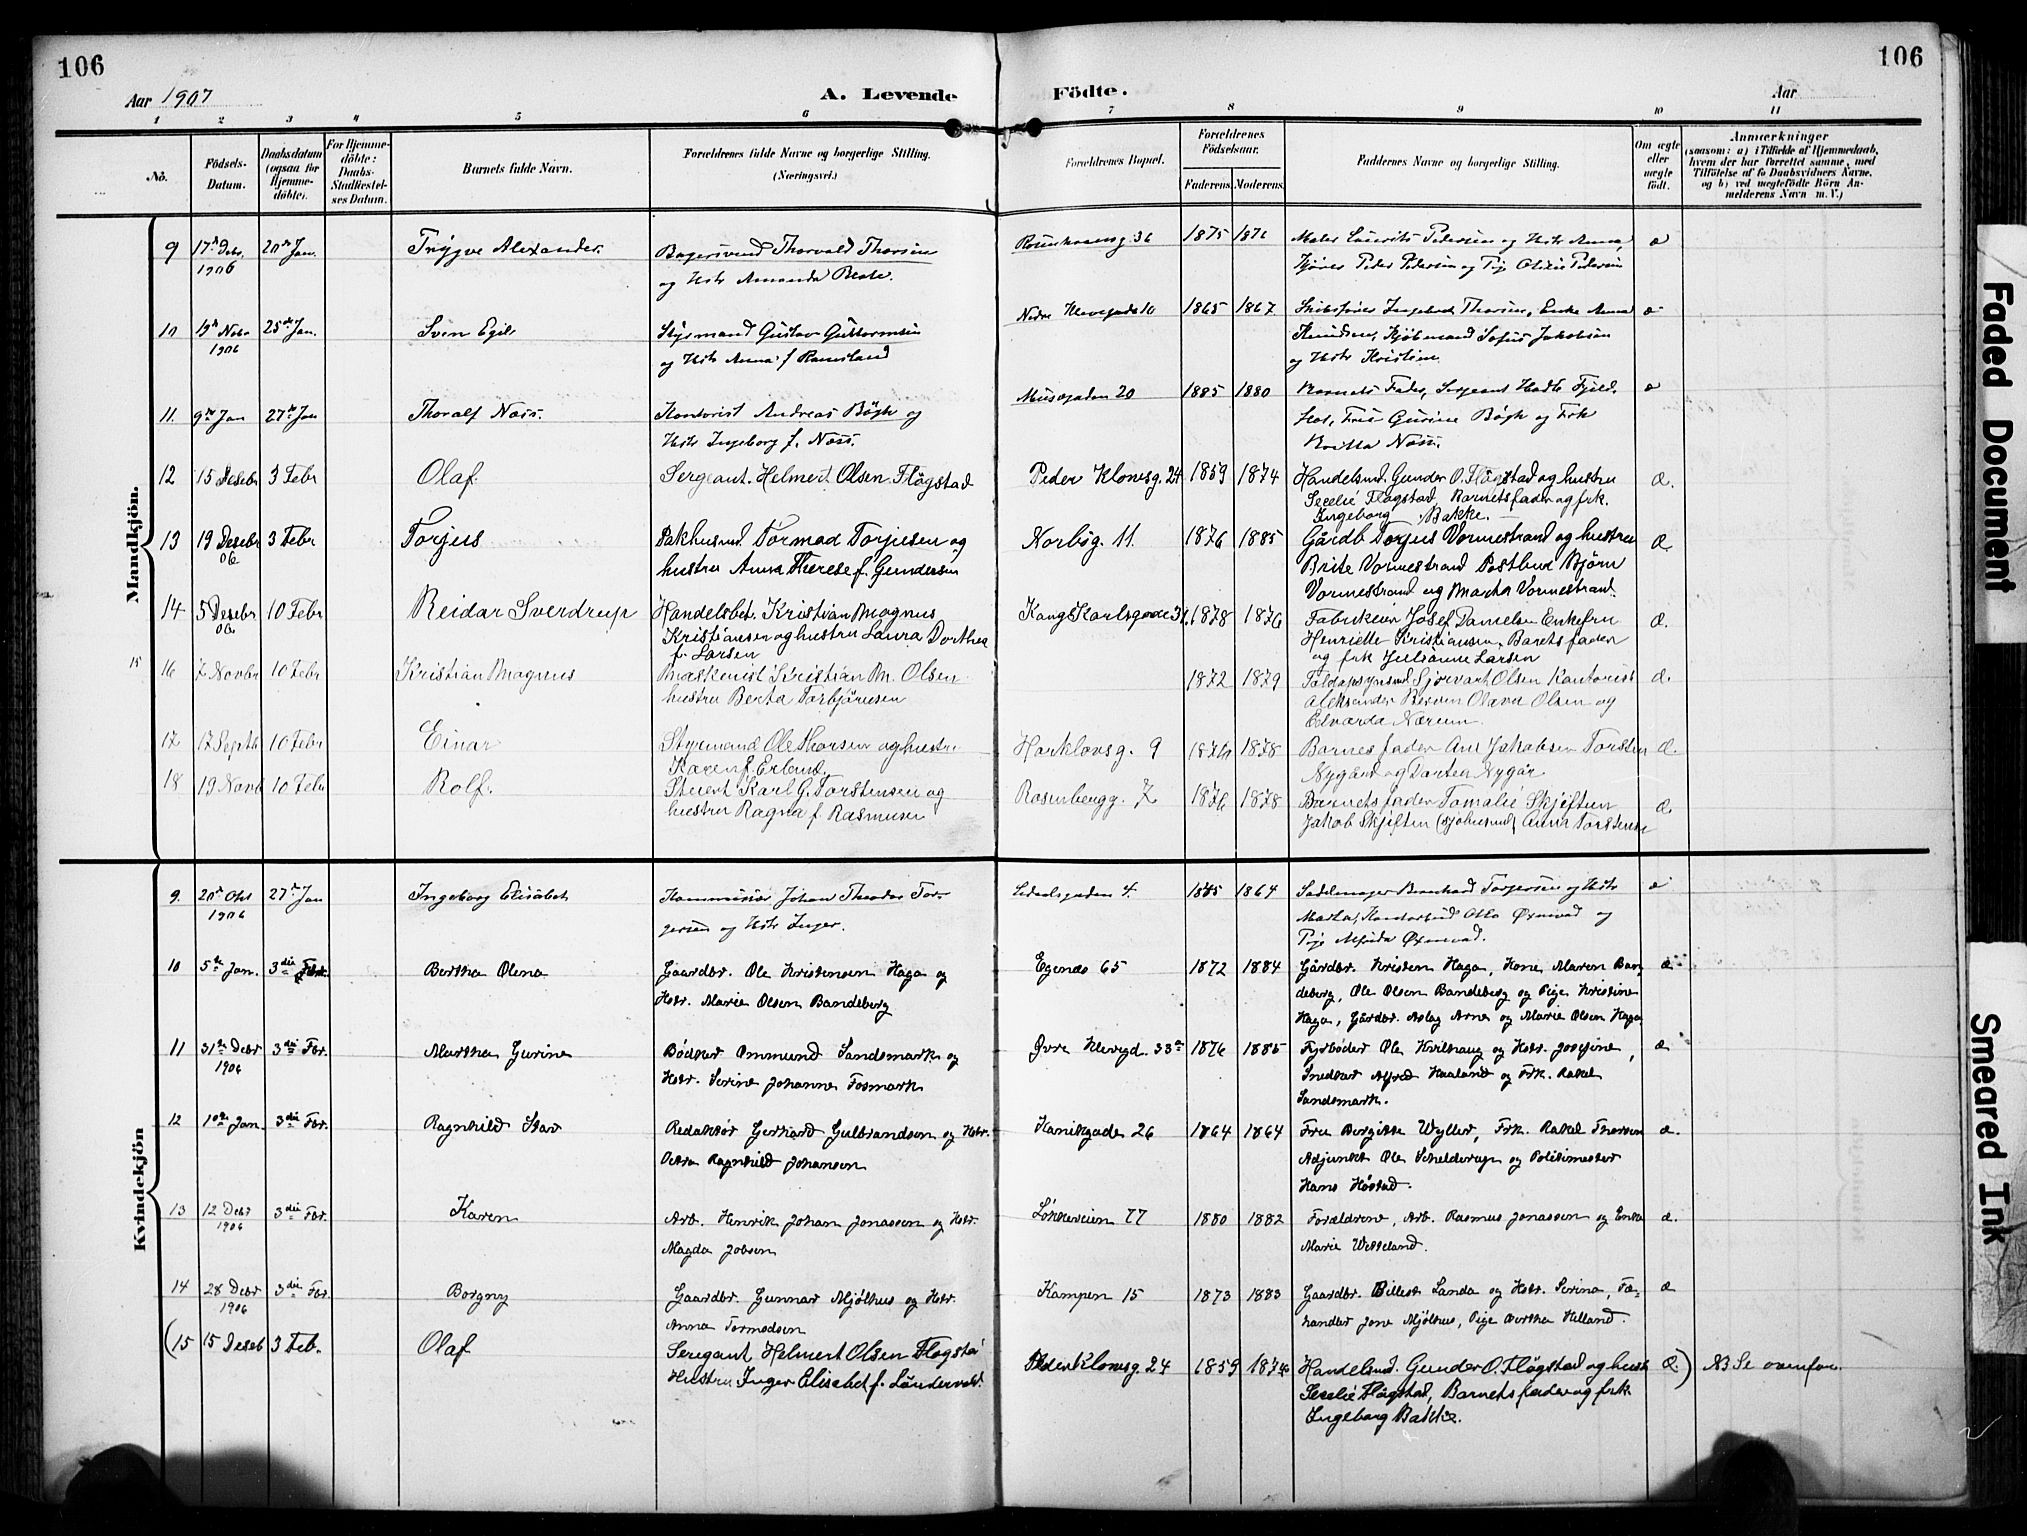 106
106
Aar 1907
A. Levende
Födte.
Aar
1 2 3 4 5 6 7 8 9 10 11
No.
Födsels-
Datum.
Daabsdatum
(ogsaa for
Hjemme-
döbte).
For Hjemme-
döbte:
Daabs-
Stadfæstel-
ses Datum.
Barnets fulde Navn.
Forældrenes fulde Navne og borgerlige Stilling.
(Næringsvei.)
Forældrenes Bopæl.
Forældrenes
Födselsaar.
Faderens. Moderens.
Faddernes Navne og borgerlige Stilling.
Om ægte
eller
uægte
födt.
Anmærkninger
(saasom: a) i Tilfælde af Hjemmedaab,
hvem der har forrettet samme, med
Tilföielse af to Daabsvidners Navne,
og b) ved uægtefödte Börn An-
melderens Navn m. V.)
Mandkjön.
9 17de Debr. 20de Jan. Trygve Alexander. Bagersvend Thorvald Thorsen 36 1875 Maler Laurits Pedersen og Hstr Anna, æ
1906 og Hstr Amanda Peder Pedersen og
10 19de Nobr 25de Jan. Sven Egil Styrmand Gustav Guttormsen Nedre Klevegade 10 1865 1867 Skibsfører Thorsen, Enke Anna æ
1906 og Hstr Anna f. Ramsland Knudsen, Kjøbmand Sofus Jakobsen
og Hstr Kristine.
11. 9de Jan 27de Jan Thoralf Næss. Kontorist Andreas Bögh og Musægaden 20 1885 1880 Barnets Fader, Sergeant æ
Hstr Ingeborg f. Næss. Fru Gurine Bögh og Frk
Næss.
12 15 Desebr 3 Febr Olaf. Sergeant. Helmert Olsen Flögstad Peder Klowsg. 24 1859 1874 Handelsmd. Gunder O. Flögstad og hustru æ.
Secelie Flögstad, Barnets fader og frk.
Ingeborg Bakke.
13 19 Desebr 3 Febr Torjus Pakhusmd Tormod Torjusen og Norbög. 11 1876 1885 Gårdb Torjus Vormestrand og hustru æ.
06 hustru Anna Therese f. Gundersen Brite Vormestrand Postbud Björn
Vormestrand og Marta Vormestrand.
14 5 Desebr 10 Febr Reidar Sverdrup Handelsbet. Kristian Magnus Kong Karlsgade 31. 1878 1876 Fabrikeier Josef Danielsen Enkefru æ.
06 Kristiansen og hustru Laura Dorthea Henriette Kristiansen, Barets fader
f. Larsen og frk Julianne Larsen
15
16 7 Novbr 10 Febr Kristian Magnus Maskinist Kristian M. Olsen 1872 1879 Olsen Kontorist æ.
hustru Berta Torbjörnsen Aleksander Olava Olsen og
Edvarda Nærum.
17 17 Septb 10 Febr Einar Styrmand Ole Thorsen og hustru Harklovsg. 9 1878 Barnes fader Jakobsen Torsten æ.
Karen f. Erland. Nygård og Dortea Nygår
18 19 Novb 10 Febr Rolf. Stuert Karl G. Torstensen og Rosenbergg. 7 1876 1878 Barnets fader Tomalie Skjeften æ.
hustru Ragna f. Rasmusen Jakob Skjeften Anna Torstensen
Kvindekjön
9. 20de Okt 27de Jan Ingeborg Elisabet Kommissær Johan Theodor Tor- Ledaalsgaden 4. 1864 Sadelmager Bernhard Torjersen og Hstr æ
1906 gersen og Hstr Inger. Marta, Otto Øxnevad og
Pige Alfrida Øxnevad.
10 5te Jan. 3die Febr. Bertha Olena Gaardbr. Ole Kristensen Haga og Egenæs 65 1872 1884 Gårdbr. Kristen Haga, Kone Maren Ban- æ.
Hstr. Marie Olsen Bandeberg deberg, Ole Olsen Bandeberg og Pige Kristine
Haga, Gårdbr. Aslag Arne og Marie Olsen Haga
11 31te Debr 3die Febr. Martha Gurine Bødker Ommund Sandsmark og Øvre Klevegd. 33a 1876 1885 Fyrbøder Ole Kvilhaug og Hstr. Josefine, æ
1906 Hstr. Serine Johanne Fosmark Snedker Alfred Haaland og Frk. Rakel
Sandsmark.
12 10de Jan. 3die Febr. Ragnhild Redaktør Gerhard Gulbrandsen og Hstr. Kanikgade 26 1864 1864 Fru Birgitte Wyller, Frk. Rakel Thorsen æ.
Petra Ragnhild Johansen Adjunkt Ole Schelderup og Politimester
Hans Høstad.
13 12 Debr 3die Febr. Karen Arb. Henrik Johan Jonassen og Hstr. Løkkeveien 77 1880 1882 Forældrene, Arb. Rasmus Jonassen og Enke æ.
1906 Magda Jobsen Marie Vetteland.
14 28 Debr 3die Febr. Borgny Gaardbr. Gunnar Mjølhus og Hstr. Kampen 15 1873 1883 Gaardbr. Billest Landa og Hstr. Serina, Fæ- æ
1906 Anna Tormodsen handler Jone Mjølhus, Pige Berthe Helland.
(15 15 Deseb 3 Feb. Olaf Seregant Helmert Olsen Flogstad Peder Klowsg. 24 1859 1874 Handelsmd. Gunder O. Flögstad og hust æ.) NB Se ovenfor.
Hustru Inger Elisabet f. Söndervold. Secelie Flögstad, Barnets fader og frk
Ingeborg Bakke.
Faded Document
Smeared Ink